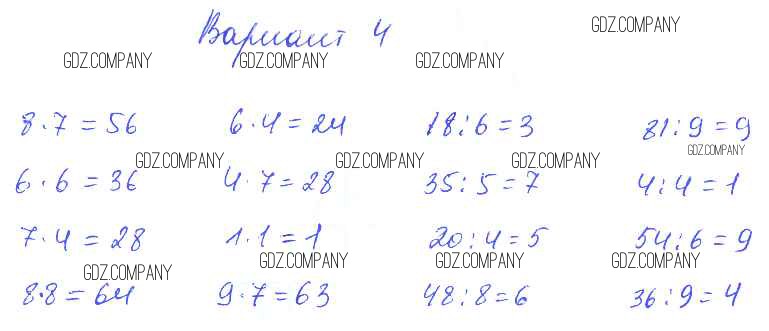 Вариант 4
GDZ.COMPANY
GDZ.COMPANY GDZ.COMPANY GDZ.COMPANY
8·7=56 6·4=24 18:6=3 81:9=9
GDZ.COMPANY GDZ.COMPANY GDZ.COMPANY GDZ.COMPANY
6·6=36 4·7=28 35:5=7 4:4=1
7·4=28 1·1=1 20:4=5 54:6=9
GDZ.COMPANY GDZ.COMPANY GDZ.COMPANY GDZ.COMPANY
8·8=64 9·7=63 48:8=6 36:9=4